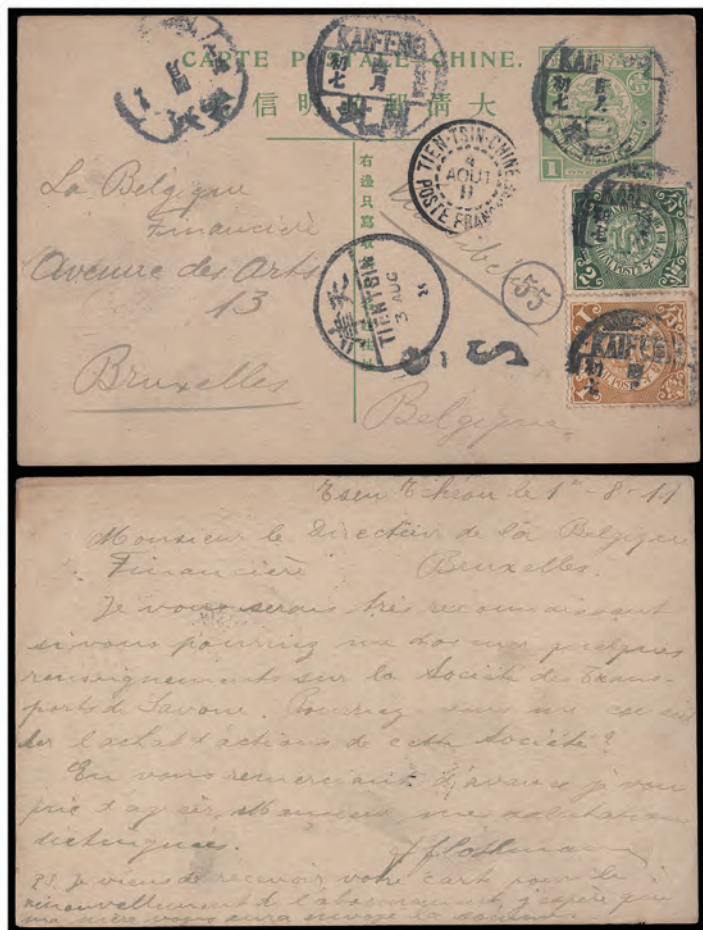 CARTE POSTALE CHINE.
大清郵政明信
右邊只寫收
1
KAIFENG
初七
KAIFENG
初七
TIEN-TSIN-CHINE
4
AOUT
11
POSTE FRANÇ
La Belgique
Financière
Avenue des Arts
13
Bruxelles
Belgique
TIENTSIN
3 AUG
55
S
2
1
KAIFEN
初七
Tsen Tchéou le 1er-8-11
Monsieur le Directeur de la Belgique
Financière Bruxelles.
Je vous serais très reconnaissant
si vous pourriez me donner quelques
renseignements sur la Société des Trans-
ports de Savone. Pourriez vous me conseil
ler l'achat d'actions de cette Société?
En vous remerciant d'avance je vous
prie d'agréer, Monsieur mes salutations
distinguées.
PS. Je viens de recevoir votre carte pour le
renouvellement de l'abonnement, j'espère que
ma mère vous aura envoyé la somme.